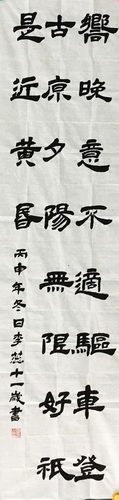 嚮晚意不適驅車登
古原夕陽無限好祇
是近黄昏
丙申年冬日李蕊十一歲書